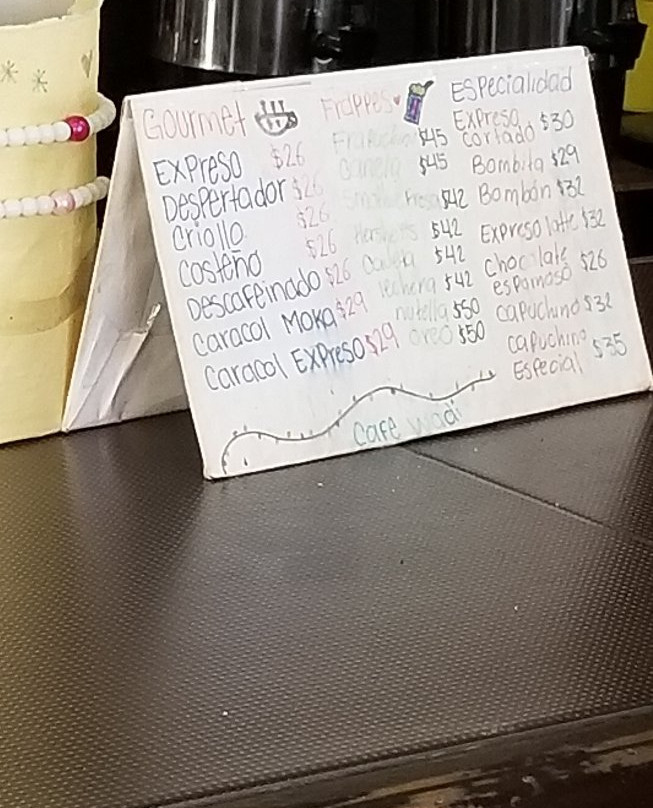 Gourmet
EXPreso $26
Despertador $26
Criollo $26
Costeño $26
Descafeinado $26
Caracol Moka $29
Caracol EXPreso $29
Frappes
$45
Canela $45
Fresa $42
Hershey's $42
$42
lechera $42
nutella $50
oreo $50
Especialidad
Expreso
cortado $30
Bombita $29
Bombón $32
Expreso latte $32
Chocolate
espumoso $26
capuchino $32
capuchino
Especial $35
Cafe wadi